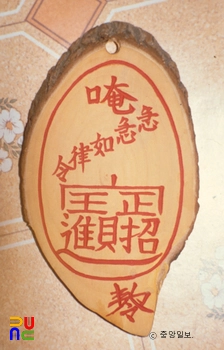 唵
急急如律令
王正
進貝招
© 중앙일보.